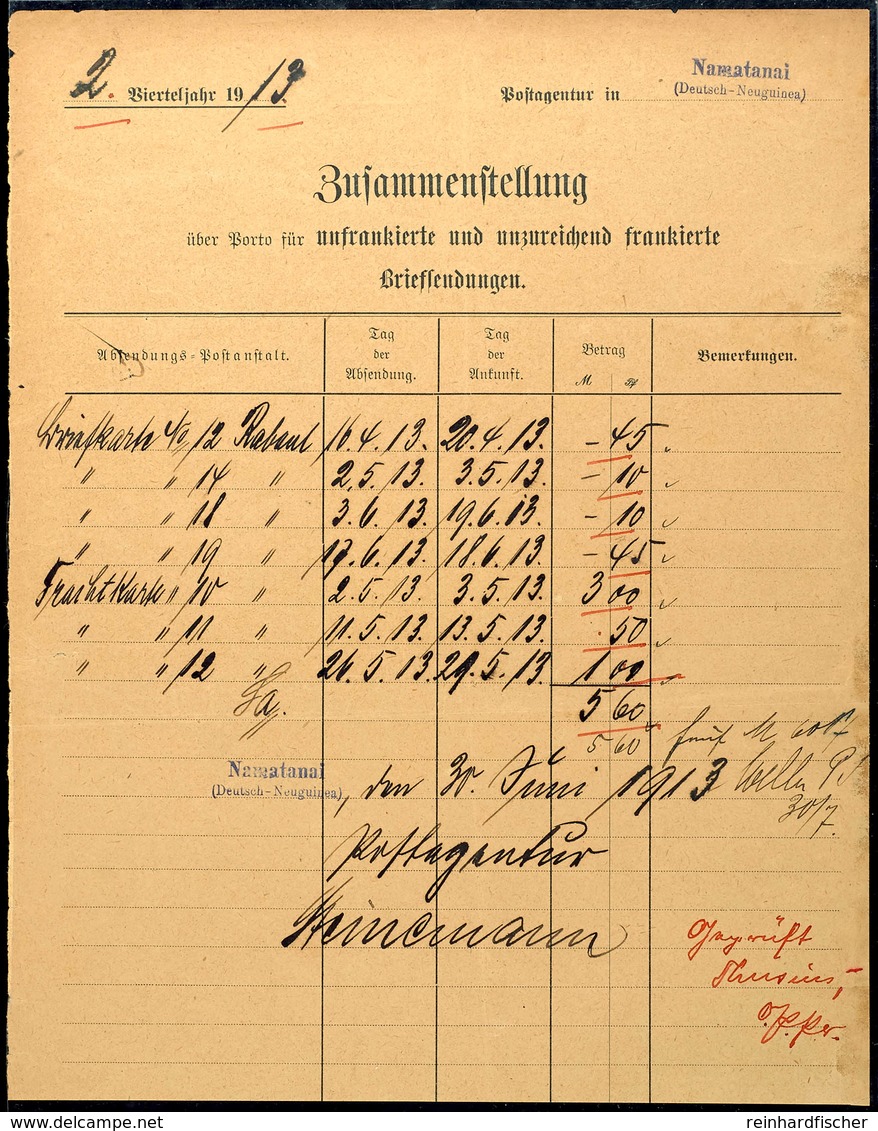 2. Vierteljahr 1913 Postagentur in Namatanai
(Deutsch-Neuguinea)
Zusammenstellung
über Porto für unfrankierte und unzureichend frankierte
Briefsendungen.
Absendungs-Postanstalt. Tag der Absendung. Tag der Ankunft. Betrag M Pf Bemerkungen.
Briefkarte No 12 Rabaul 16.4.13. 20.4.13. – 45
" " 14 " 2.5.13. 3.5.13. – 10
" " 18 " 3.6.13. 19.6.13. – 10
" " 19 " 17.6.13. 18.6.13. – 45
Frachtkarte " 10 " 2.5.13. 3.5.13. 3 00
" " 11 " 11.5.13. 13.5.13. . 50
" " 12 " 26.5.13. 29.5.13. 1 00
Sa. 5 60
5 60 fünf M 60 Pf
Namatanai
(Deutsch-Neuguinea), den 30. Juni 1913
30/7.
Postagentur
Heinemann
Geprüft
reinhardfischer